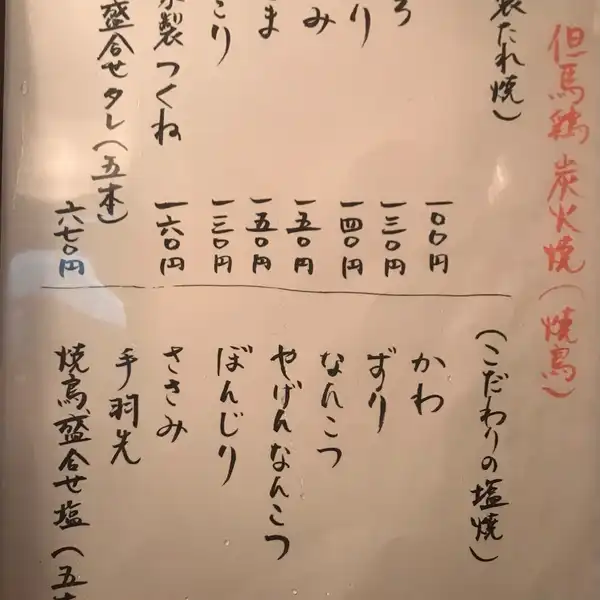 但馬鶏 炭火焼(焼鳥)
製たれ焼)
り
み
ま
こり
製つくね
盛合せタレ(五本)
一〇〇円
一三〇円
一四〇円
一五〇円
一五〇円
一三〇円
一六〇円
六七〇円
(こだわりの塩焼)
かわ
ずり
なんこつ
やげんなんこつ
ぼんじり
ささみ
手羽先
焼鳥盛合せ塩(五